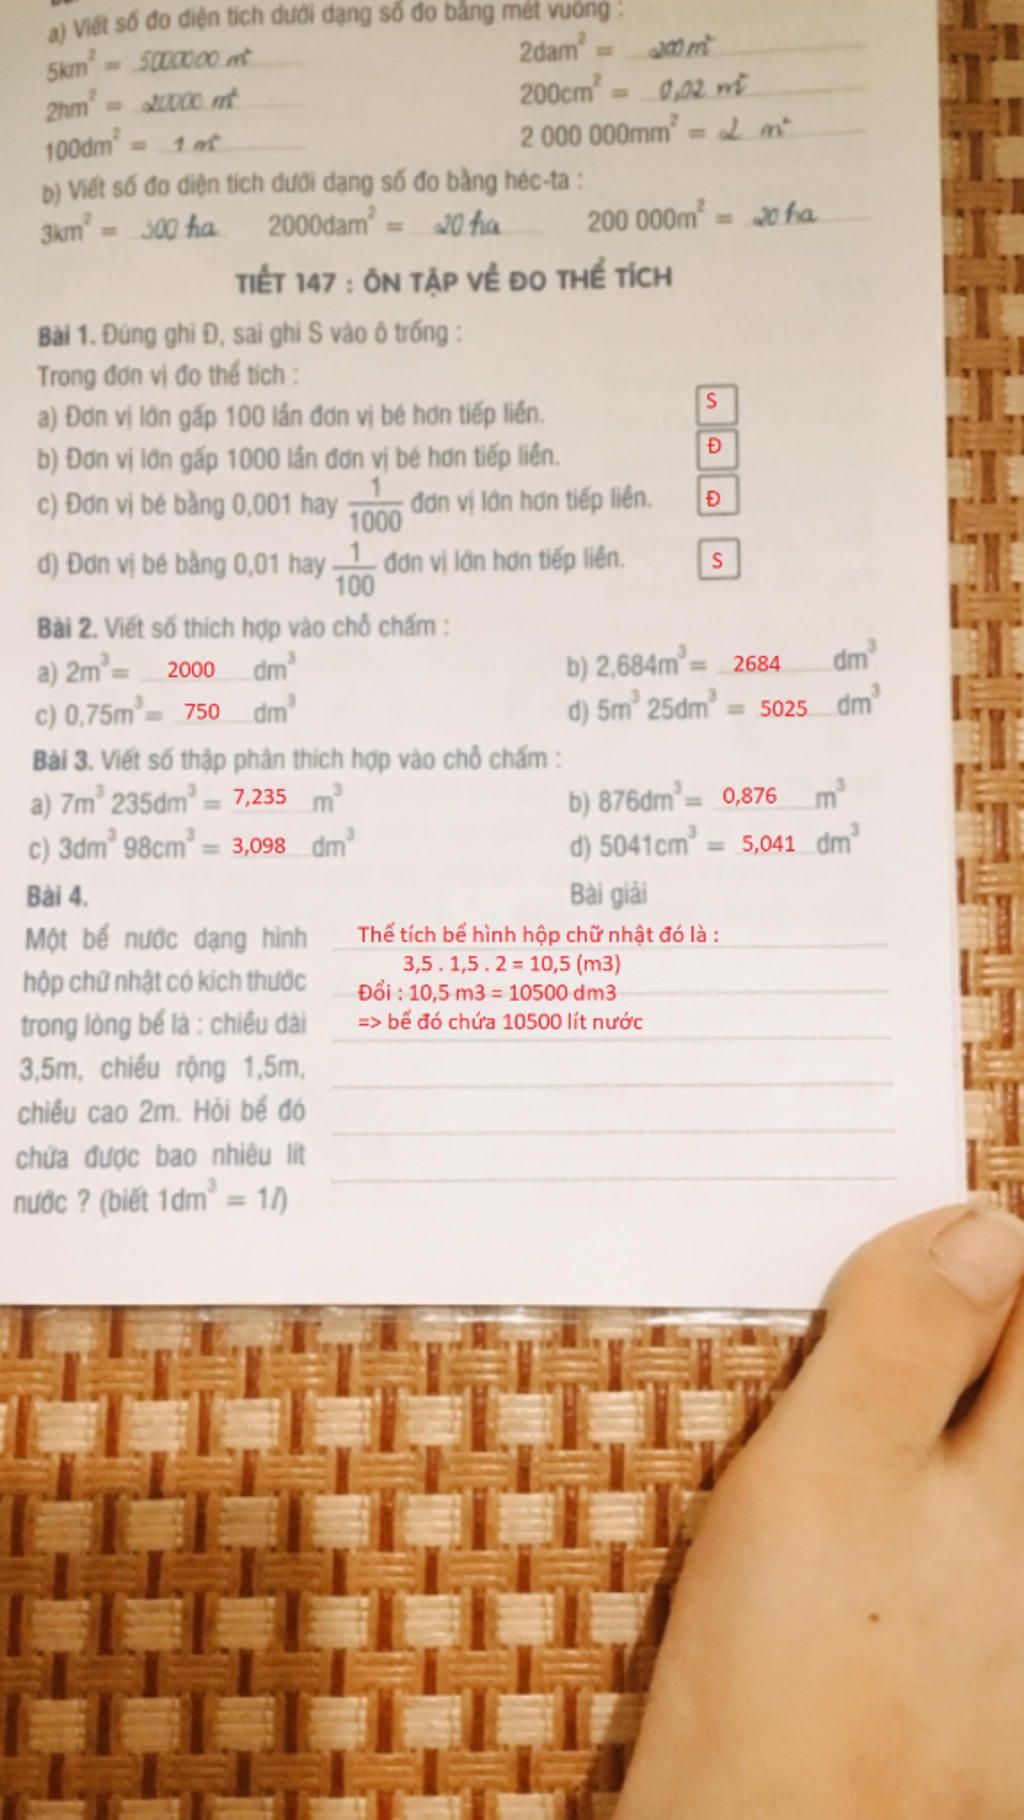 a) Viết số đo diện tích dưới dạng số đo bằng mét vuông :
5km² = 5000000 m²
2dam² = 200 m²
2hm² = 20000 m²
200cm² = 0,02 m²
100dm² = 1 m²
2 000 000mm² = 2 m²
b) Viết số đo diện tích dưới dạng số đo bằng héc-ta :
3km² = 300 ha 2000dam² = 20 ha 200 000m² = 20 ha
TIẾT 147 : ÔN TẬP VỀ ĐO THỂ TÍCH
Bài 1. Đúng ghi Đ, sai ghi S vào ô trống :
Trong đơn vị đo thể tích :
a) Đơn vị lớn gấp 100 lần đơn vị bé hơn tiếp liền. S
b) Đơn vị lớn gấp 1000 lần đơn vị bé hơn tiếp liền. Đ
c) Đơn vị bé bằng 0,001 hay 1/1000 đơn vị lớn hơn tiếp liền. Đ
d) Đơn vị bé bằng 0,01 hay 1/100 đơn vị lớn hơn tiếp liền. S
Bài 2. Viết số thích hợp vào chỗ chấm :
a) 2m³ = 2000 dm³
b) 2,684m³ = 2684 dm³
c) 0,75m³ = 750 dm³
d) 5m³ 25dm³ = 5025 dm³
Bài 3. Viết số thập phân thích hợp vào chỗ chấm :
a) 7m³ 235dm³ = 7,235 m³
b) 876dm³ = 0,876 m³
c) 3dm³ 98cm³ = 3,098 dm³
d) 5041cm³ = 5,041 dm³
Bài 4.
Một bể nước dạng hình
hộp chữ nhật có kích thước
trong lòng bể là : chiều dài
3,5m, chiều rộng 1,5m,
chiều cao 2m. Hỏi bể đó
chứa được bao nhiêu lít
nước ? (biết 1dm³ = 1l)
Bài giải
Thể tích bể hình hộp chữ nhật đó là :
3,5 . 1,5 . 2 = 10,5 (m3)
Đổi : 10,5 m3 = 10500 dm3
=> bể đó chứa 10500 lít nước